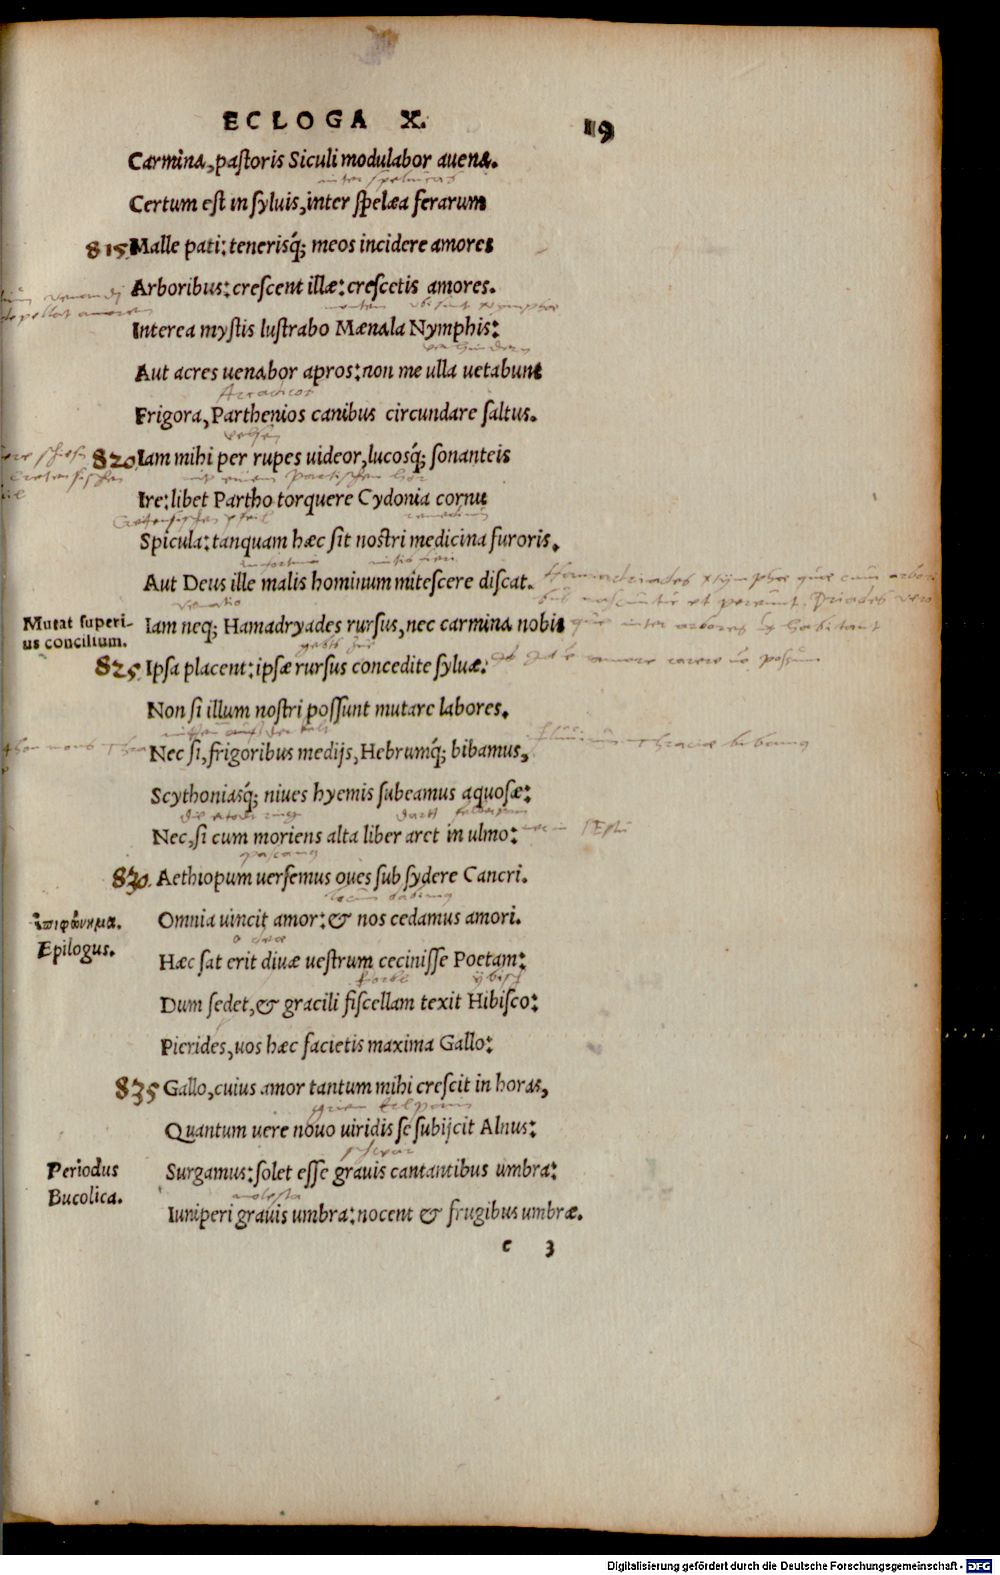 ECLOGA X. 19
Carmina, pastoris Siculi modulabor auena.
inter speluncas
Certum est in syluis, inter spelæa ferarum
815. Malle pati: tenerisq́; meos incidere amores
Arboribus: crescent illæ: crescetis amores.
montem ubi sunt Nymphae
Interea mystis lustrabo Mænala Nymphis:
Aut acres uenabor apros: non me ulla uetabunt
Frigora, Parthenios canibus circundare saltus.
820. Iam mihi per rupes uideor, lucosq́; sonanteis
Ire: libet Partho torquere Cydonia cornu
Spicula: tanquam hæc sit nostri medicina furoris.
Aut Deus ille malis hominum mitescere discat.
Hamadriades Nymphæ quæ cum arbori
bus nascuntur et pereunt. Driades vero
venatio
Mutat superi-
us concilium.
Iam neq; Hamadryades rursus, nec carmina nobis
quæ inter arbores habitant
825. Ipsa placent: ipsæ rursus concedite syluæ:
amore carere possum
Non si illum nostri possunt mutare labores.
Nec si, frigoribus medijs, Hebrumq́; bibamus,
Thraciæ bibamus
Scythoniasq́; niues hyemis subeamus aquosæ:
Nec, si cum moriens alta liber aret in ulmo:
pascamus
830. Aethiopum uersemus oues sub sydere Cancri.
locum damus
Omnia uincit amor: & nos cedamus amori.
ἐπιφώνημα.
Epilogus.
o deæ
Hæc sat erit diuæ uestrum cecinisse Poetam:
Dum sedet, & gracili fiscellam texit Hibisco:
Pierides, uos hæc facietis maxima Gallo:
835 Gallo, cuius amor tantum mihi crescit in horas,
Quantum uere nouo uiridis se subijcit Alnus:
Periodus
Bucolica.
Surgamus: solet esse grauis cantantibus umbra:
molesta
Iuniperi grauis umbra: nocent & frugibus umbræ.
c 3
Digitalisierung gefördert durch die Deutsche Forschungsgemeinschaft - DFG